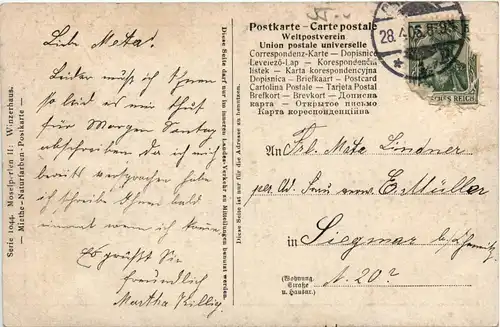 Liebe Meta!
Leider muß ich Ihnen
so leid es mir thut
für Morgen Sontag
abschreiben da ich mich
bereits versprochen habe
ich schreibe Ihnen bald
einmal wenn ich komme
Es grüßt Sie
freundlich
Martha Killig.
Serie 1044. Moselp-rien II: Winzerhaus.
— Miethe-Naturfarben-Postkarte —
Diese Seite darf nur im innern Landes-Verkehr zu Mitteilungen benutzt werden.
Diese Seite ist nur für die Adresse zu benutzen.
Postkarte – Carte postale
Weltpostverein
Union postale universelle
Correspondenz-Karte – Dopisnice
Levelező-Lap – Korespondencni
listek – Karta korespondencyjna
Dopisnica – Briefkaart – Postcard
Cartolina Postale – Tarjeta Postal
Brefkort – Brevkort – Дописна
карта – Открытое письмо
Карта кореспонденційна
28.4.06. 8-9N
DEUTSCHES REICH
An Frl. Meta Lindner
per. Ad. Frau verw. E. Müller
in Siegmar b/Chemnitz
(Wohnung,
Straße
u. Hausnr.)
N. 20?